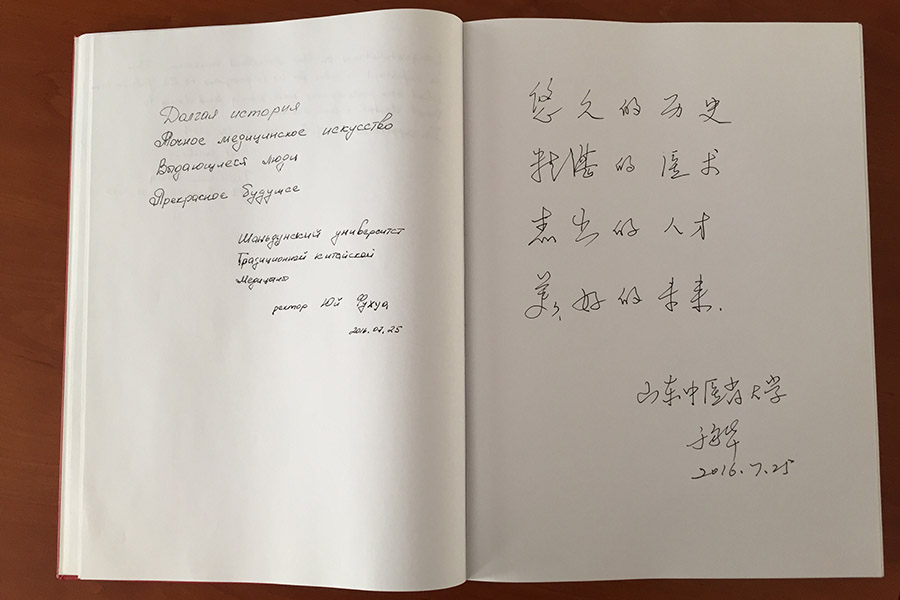 Долгая история
Точное медицинское искусство
Выдающиеся люди
Прекрасное будущее
Шаньдунский университет
Традиционной китайской
Медицины
ректор Юй Фухуа
2016.07.25
悠久的历史
精湛的医术
杰出的人才
美好的未来.
山东中医药大学
2016.7.25